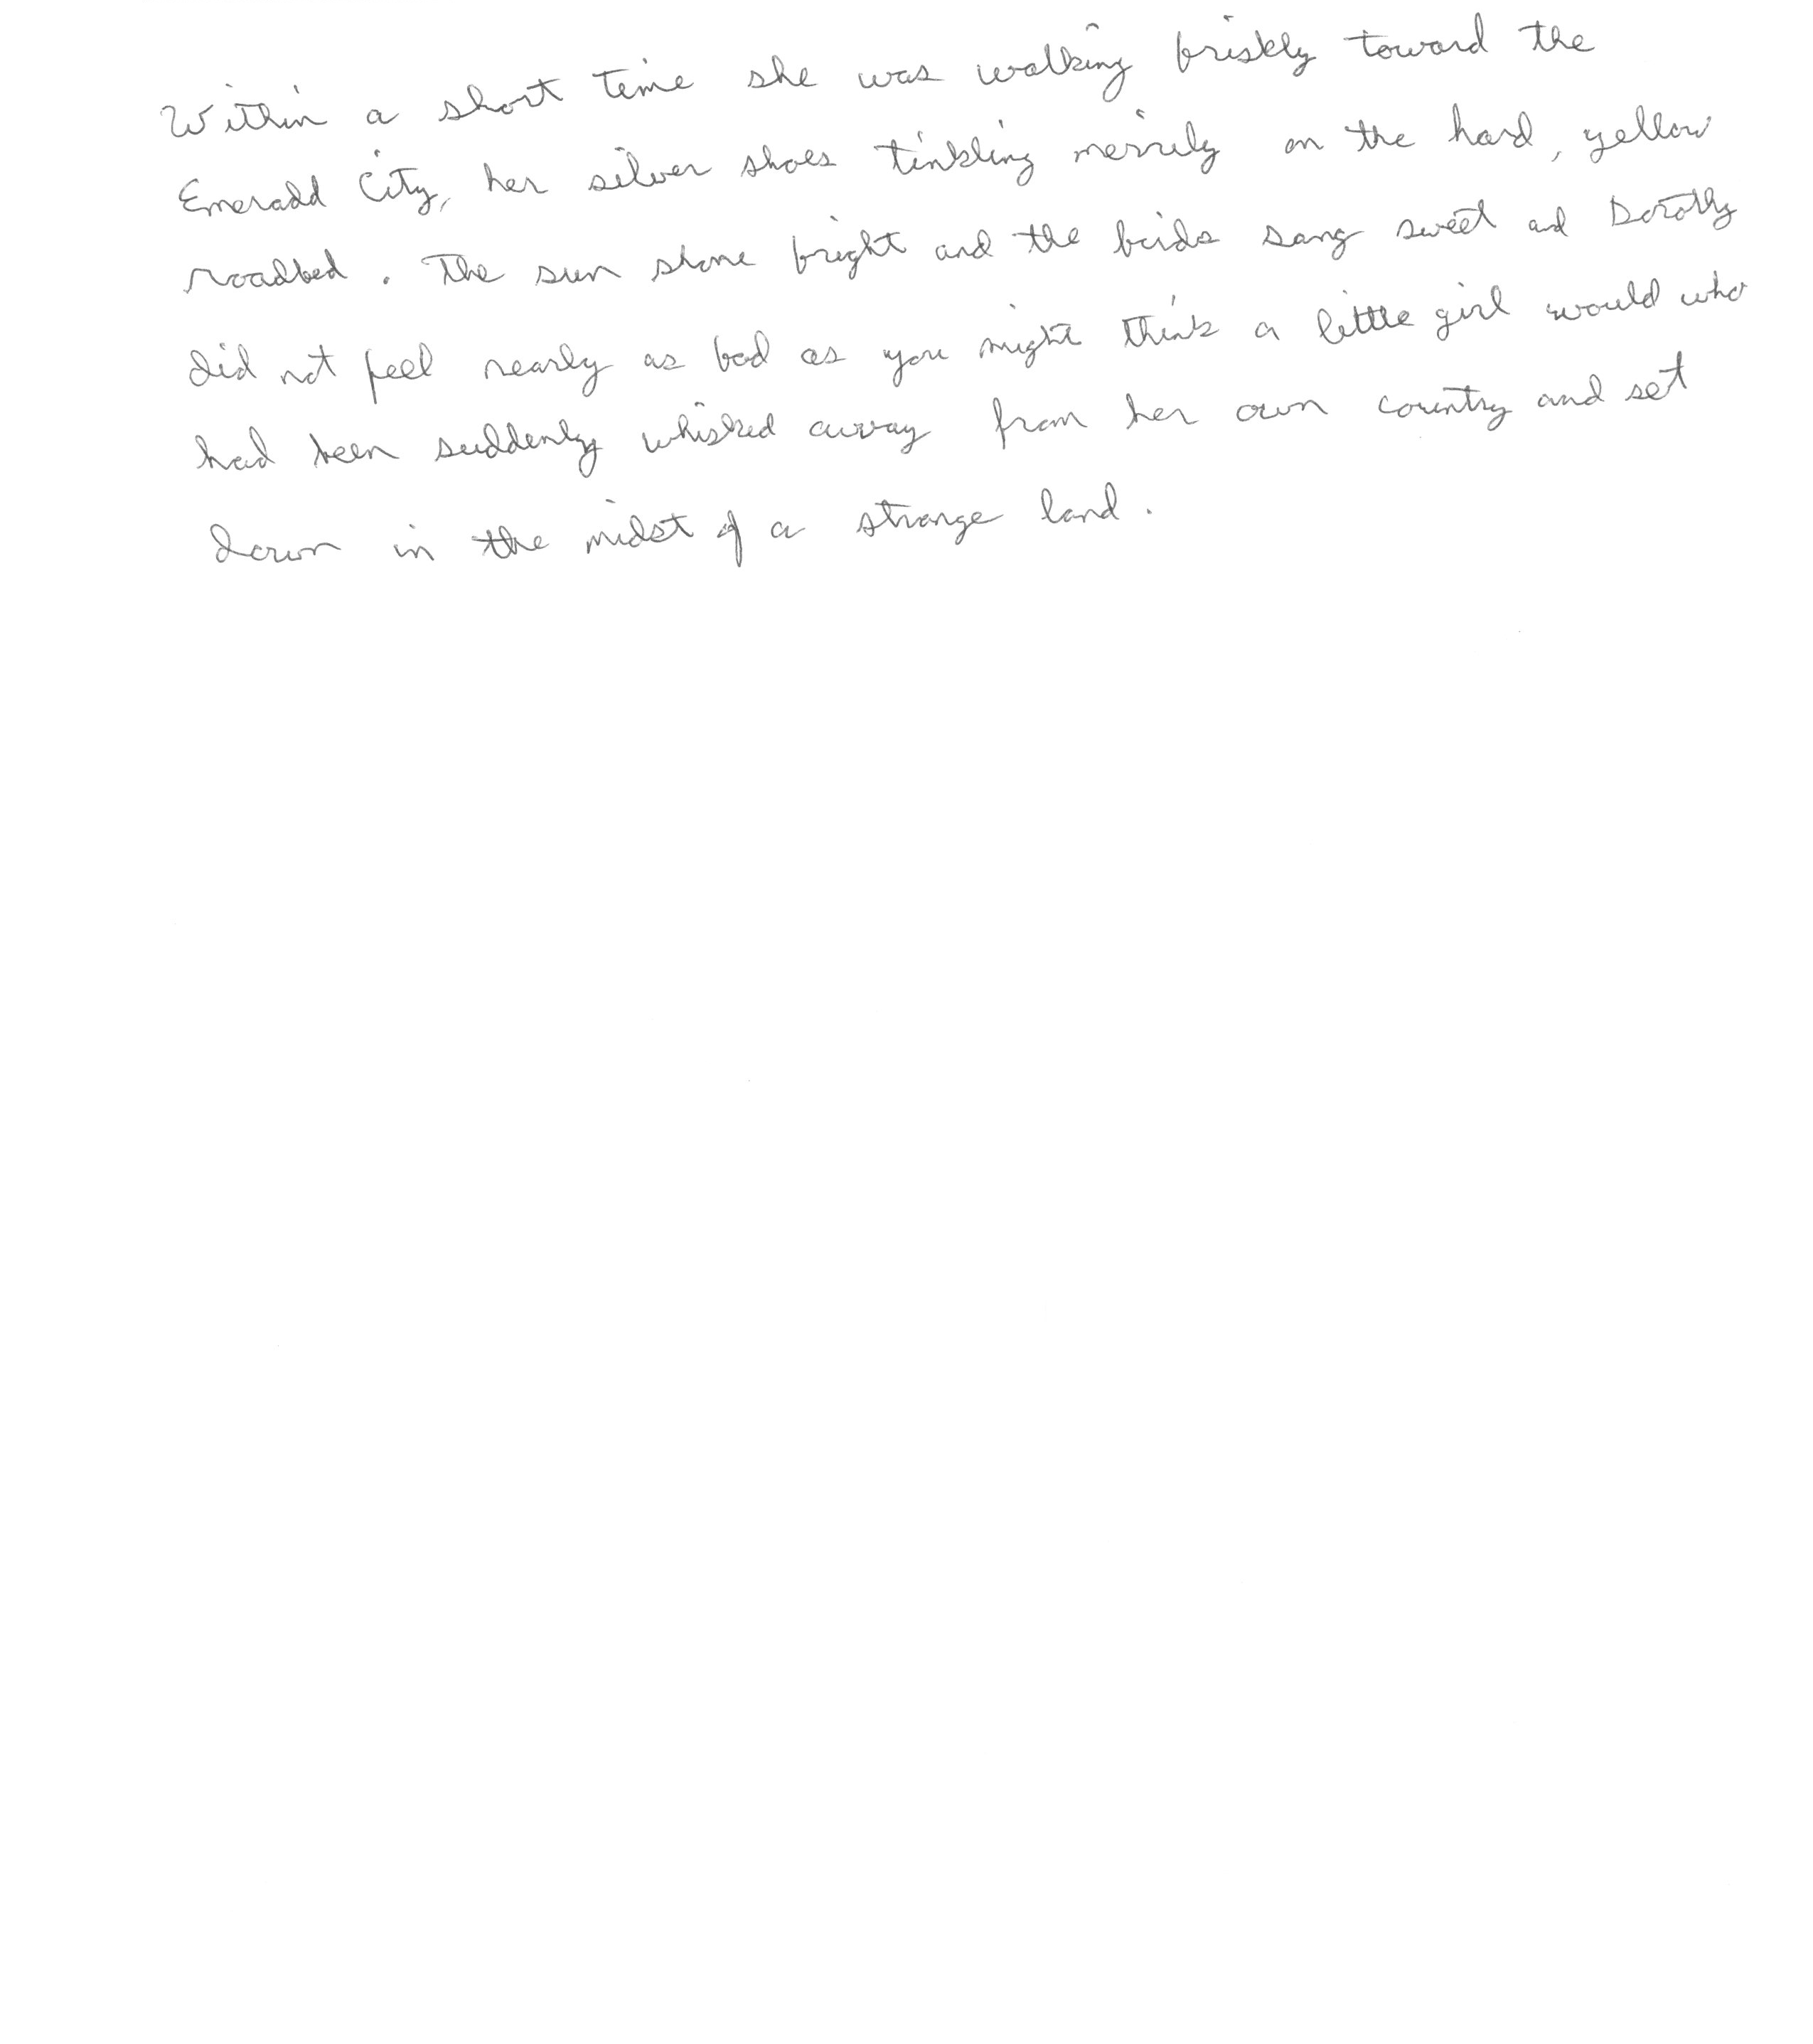 Within a short time she was walking briskly toward the
Emerald City, her silver shoes tinkling merrily on the hard, yellow
roadbed. The sun shone bright and the birds sang sweet and Dorothy
did not feel nearly as bad as you might think a little girl would who
had been suddenly whisked away from her own country and set
down in the midst of a strange land.